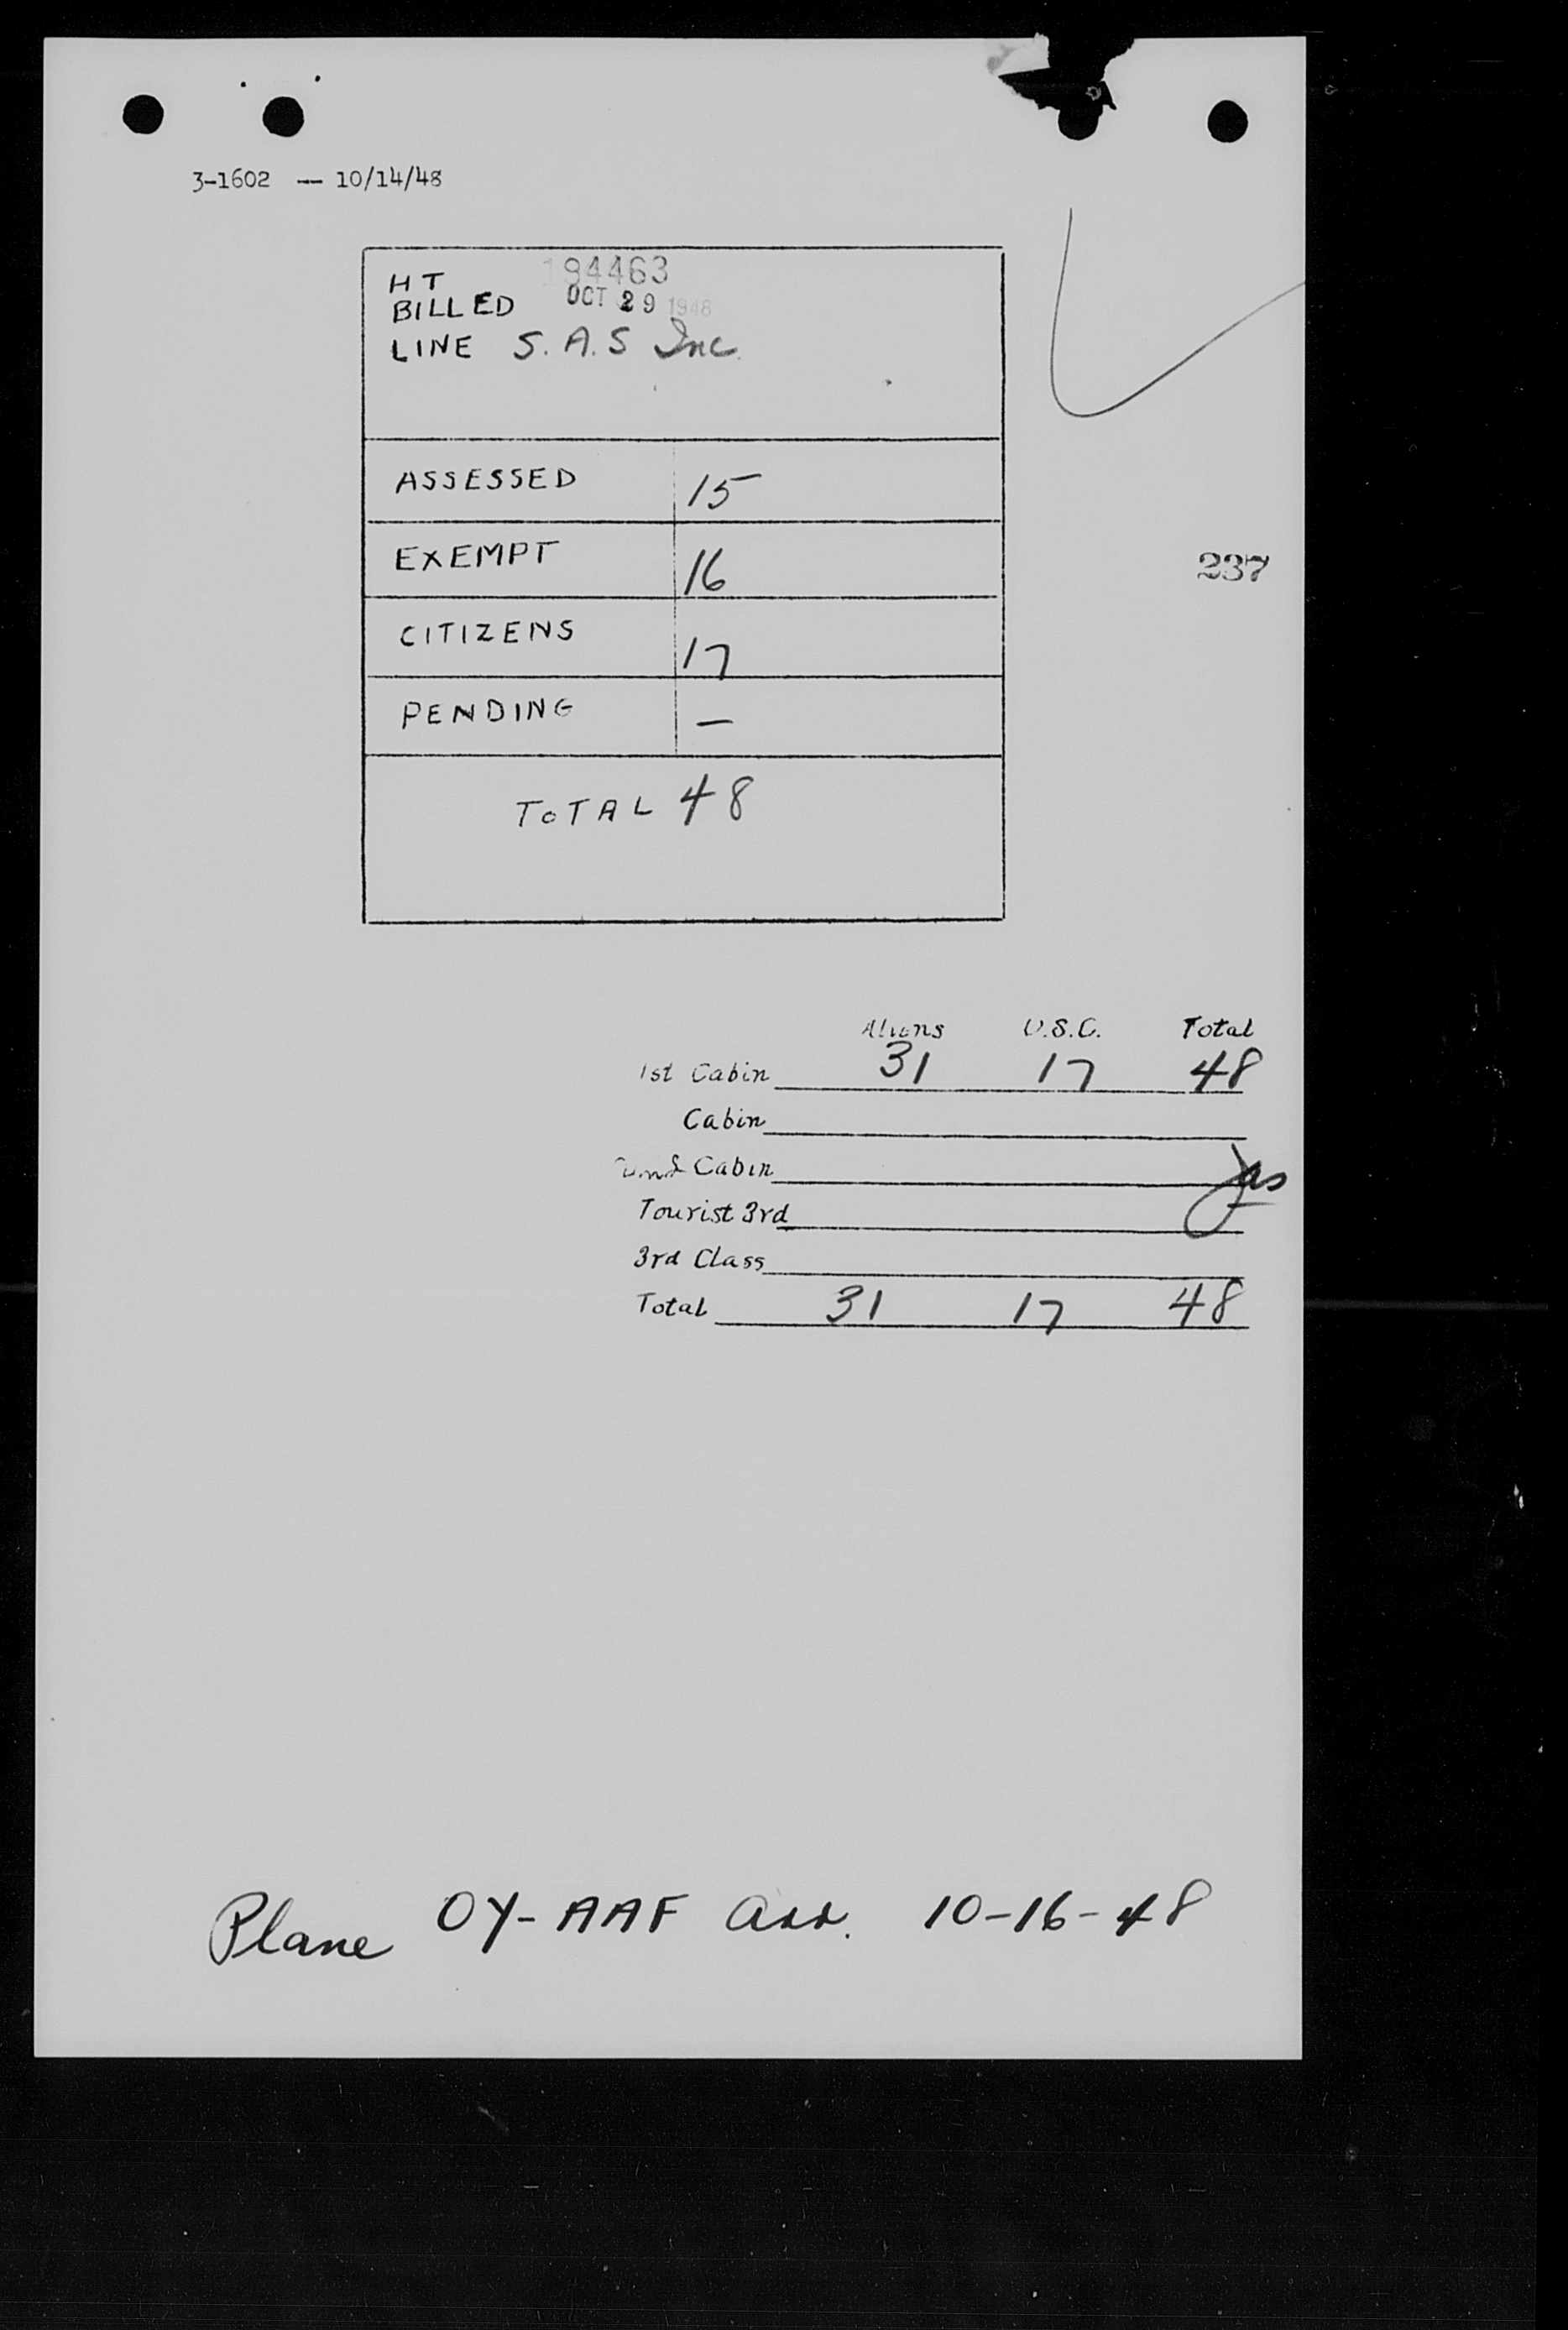 3-1602 -- 10/14/48
194463
HT
BILLED OCT 29 1948
LINE S.A.S Inc.
ASSESSED 15
EXEMPT 16
237
CITIZENS 17
PENDING —
TOTAL 48
Aliens U.S.C. Total
1st Cabin 31 17 48
Cabin
Cabin
Tourist 3rd
3rd Class
Total 31 17 48
Plane OY-AAF arr. 10-16-48